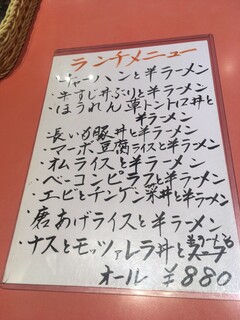 ランチメニュー
・チャーハンと半ラーメン
・牛すじ丼ぶりと半ラーメン
・ほうれん草トントロス丼と
半ラーメン
・長いも豚丼と半ラーメン
・マーボ豆腐ライスと半ラーメン
・オムライスと半ラーメン
・ベーコンピラフと半ラーメン
・エビとチンゲン菜丼と半ラーメン
・唐あげライスと半ラーメン
・ナスとモッツァレラ丼と半ラーメン
オール ¥880